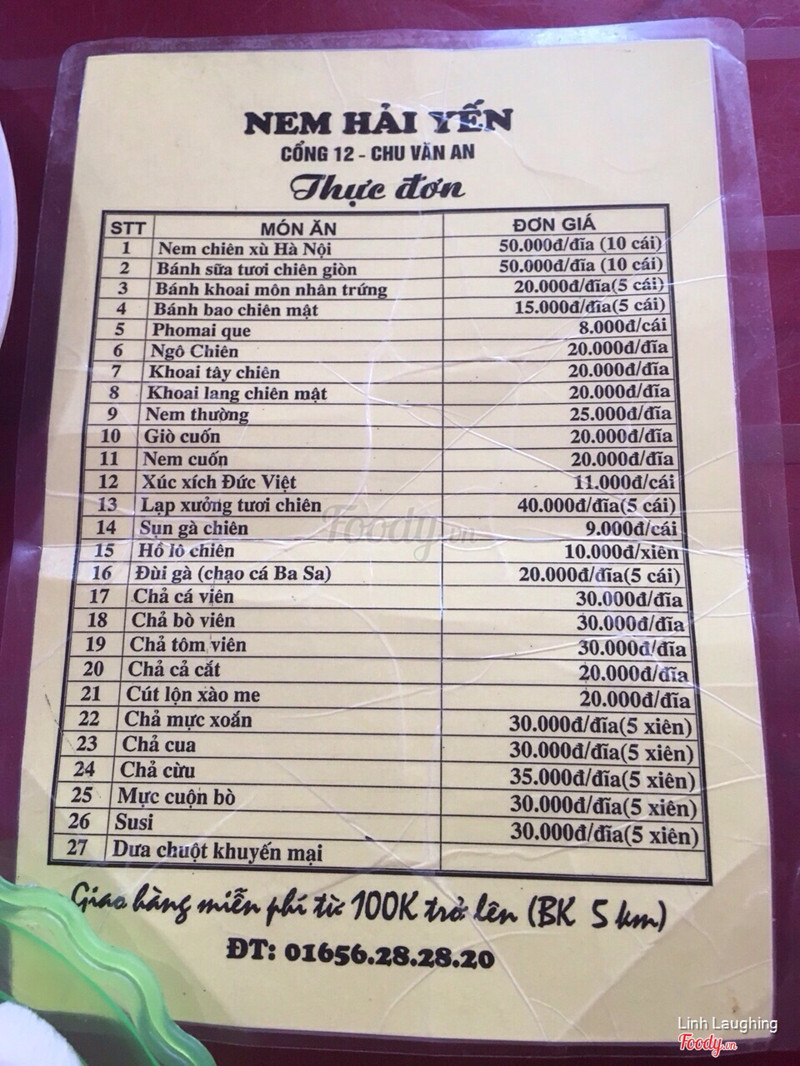 NEM HẢI YẾN
CỔNG 12 - CHU VĂN AN
Thực đơn
STT MÓN ĂN ĐƠN GIÁ
1 Nem chiên xù Hà Nội 50.000đ/đĩa (10 cái)
2 Bánh sữa tươi chiên giòn 50.000đ/đĩa (10 cái)
3 Bánh khoai môn nhân trứng 20.000đ/đĩa(5 cái)
4 Bánh bao chiên mật 15.000đ/đĩa(5 cái)
5 Phomai que 8.000đ/cái
6 Ngô Chiên 20.000đ/đĩa
7 Khoai tây chiên 20.000đ/đĩa
8 Khoai lang chiên mật 20.000đ/đĩa
9 Nem thường 25.000đ/đĩa
10 Giò cuốn 20.000đ/đĩa
11 Nem cuốn 20.000đ/đĩa
12 Xúc xích Đức Việt 11.000đ/cái
13 Lạp xưởng tươi chiên 40.000đ/đĩa(5 cái)
14 Sụn gà chiên 9.000đ/cái
15 Hồ lô chiên 10.000đ/xiên
16 Đùi gà (chạo cá Ba Sa) 20.000đ/đĩa(5 cái)
17 Chả cá viên 30.000đ/đĩa
18 Chả bò viên 30.000đ/đĩa
19 Chả tôm viên 30.000đ/đĩa
20 Chả cả cắt 20.000đ/đĩa
21 Cút lộn xào me 20.000đ/đĩa
22 Chả mực xoắn 30.000đ/đĩa(5 xiên)
23 Chả cua 30.000đ/đĩa(5 xiên)
24 Chả cừu 35.000đ/đĩa(5 xiên)
25 Mực cuộn bò 30.000đ/đĩa(5 xiên)
26 Susi 30.000đ/đĩa(5 xiên)
27 Dưa chuột khuyến mại
Giao hàng miễn phí từ 100K trở lên (BK 5 km)
ĐT: 01656.28.28.20
Foody.vn
Linh Laughing
Foody.vn